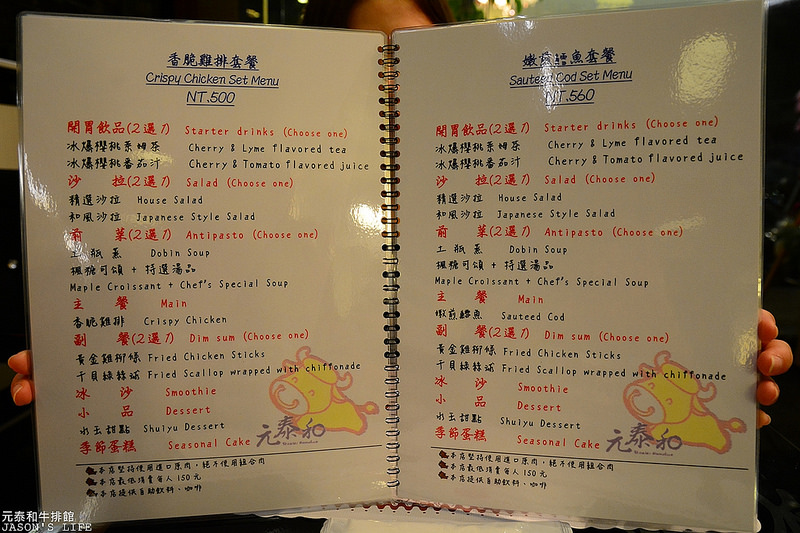 香脆雞排套餐
Crispy Chicken Set Menu
NT.500
開胃飲品(2選1) Starter drinks (Choose one)
冰爆櫻桃萊姆茶 Cherry & Lyme flavored tea
冰爆櫻桃番茄汁 Cherry & Tomato flavored juice
沙 拉(2選1) Salad (Choose one)
精選沙拉 House Salad
和風沙拉 Japanese Style Salad
前 菜(2選1) Antipasto (Choose one)
土瓶蒸 Dobin Soup
楓糖可頌 + 特選湯品
Maple Croissant + Chef's Special Soup
主 餐 Main
香脆雞排 Crispy Chicken
副 餐(2選1) Dim sum (Choose one)
黃金雞柳條 Fried Chicken Sticks
干貝綠絲絨 Fried Scallop wrapped with chiffonade
冰 沙 Smoothie
小 品 Dessert
水玉甜點 Shuiyu Dessert
季節蛋糕 Seasonal Cake
元泰和
本店堅持使用進口原肉，絕不使用組合肉
本店最低消費每人 150 元
本店提供自助飲料、咖啡
嫩煎鱈魚套餐
Sauteed Cod Set Menu
NT.560
開胃飲品(2選1) Starter drinks (Choose one)
冰爆櫻桃萊姆茶 Cherry & Lyme flavored tea
冰爆櫻桃番茄汁 Cherry & Tomato flavored juice
沙 拉(2選1) Salad (Choose one)
精選沙拉 House Salad
和風沙拉 Japanese Style Salad
前 菜(2選1) Antipasto (Choose one)
土瓶蒸 Dobin Soup
楓糖可頌 + 特選湯品
Maple Croissant + Chef's Special Soup
主 餐 Main
嫩煎鱈魚 Sauteed Cod
副 餐(2選1) Dim sum (Choose one)
黃金雞柳條 Fried Chicken Sticks
干貝綠絲絨 Fried Scallop wrapped with chiffonade
冰 沙 Smoothie
小 品 Dessert
水玉甜點 Shuiyu Dessert
季節蛋糕 Seasonal Cake
元泰和
本店堅持使用進口原肉，絕不使用組合肉
本店最低消費每人 150 元
本店提供自助飲料、咖啡
元泰和牛排館
JASON'S LIFE